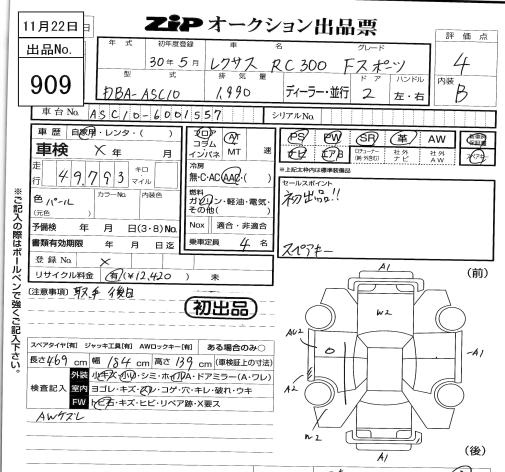 11月22日
ZiP オークション出品票
出品No.
909
年式 初年度登録 車名 グレード 評価点
30年5月 レクサス RC300 Fスポーツ 4
型式 排気量 ドア ハンドル 内装
DBA-ASC10 1,990 ディーラー・並行 2 左・右 B
車台No. ASC10-6001557 シリアルNo.
車歴 自家用・レンタ・( )
フロア コラム インパネ
AT MT 速
PS PW SR 革 AW
ナビ エアB 社外ナビ 社外AW
車検 × 年 月
※上記太枠内は標準装備品
冷房
無・C・AC・AAC・( )
走行 49,793 キロ マイル
セールスポイント
初出品!!
スペアキー
色 パール (元色 ) カラーNo. 内装色
燃料
ガソリン・軽油・電気・その他( )
予備検 年 月 日(3・8)Mo
Nox 適合・非適合
書類有効期限 年 月 日迄
乗車定員 4 名
登録No. ×
リサイクル料金 有(¥12,420 )
(注意事項) 取手 後日
初出品
(前)
スペアタイヤ[有] ジャッキ工具[有] AWロックキー[有] ある場合のみ〇
長さ469cm 幅184cm 高さ139cm (車検証上の寸法)
検査記入
外装 小キズ・小凹・シミ・ホイルA・ドアミラー(A・ワレ)
室内 ヨゴレ・キズ・スレ・コゲ・穴・キレ・破れ・ウキ
FW トビ石・キズ・ヒビ・リペア跡・X要ス
AWケズレ
A1
W2
A1
A2
W2
A1
(後)
※ご記入の際はボールペンで強くご記入下さい。